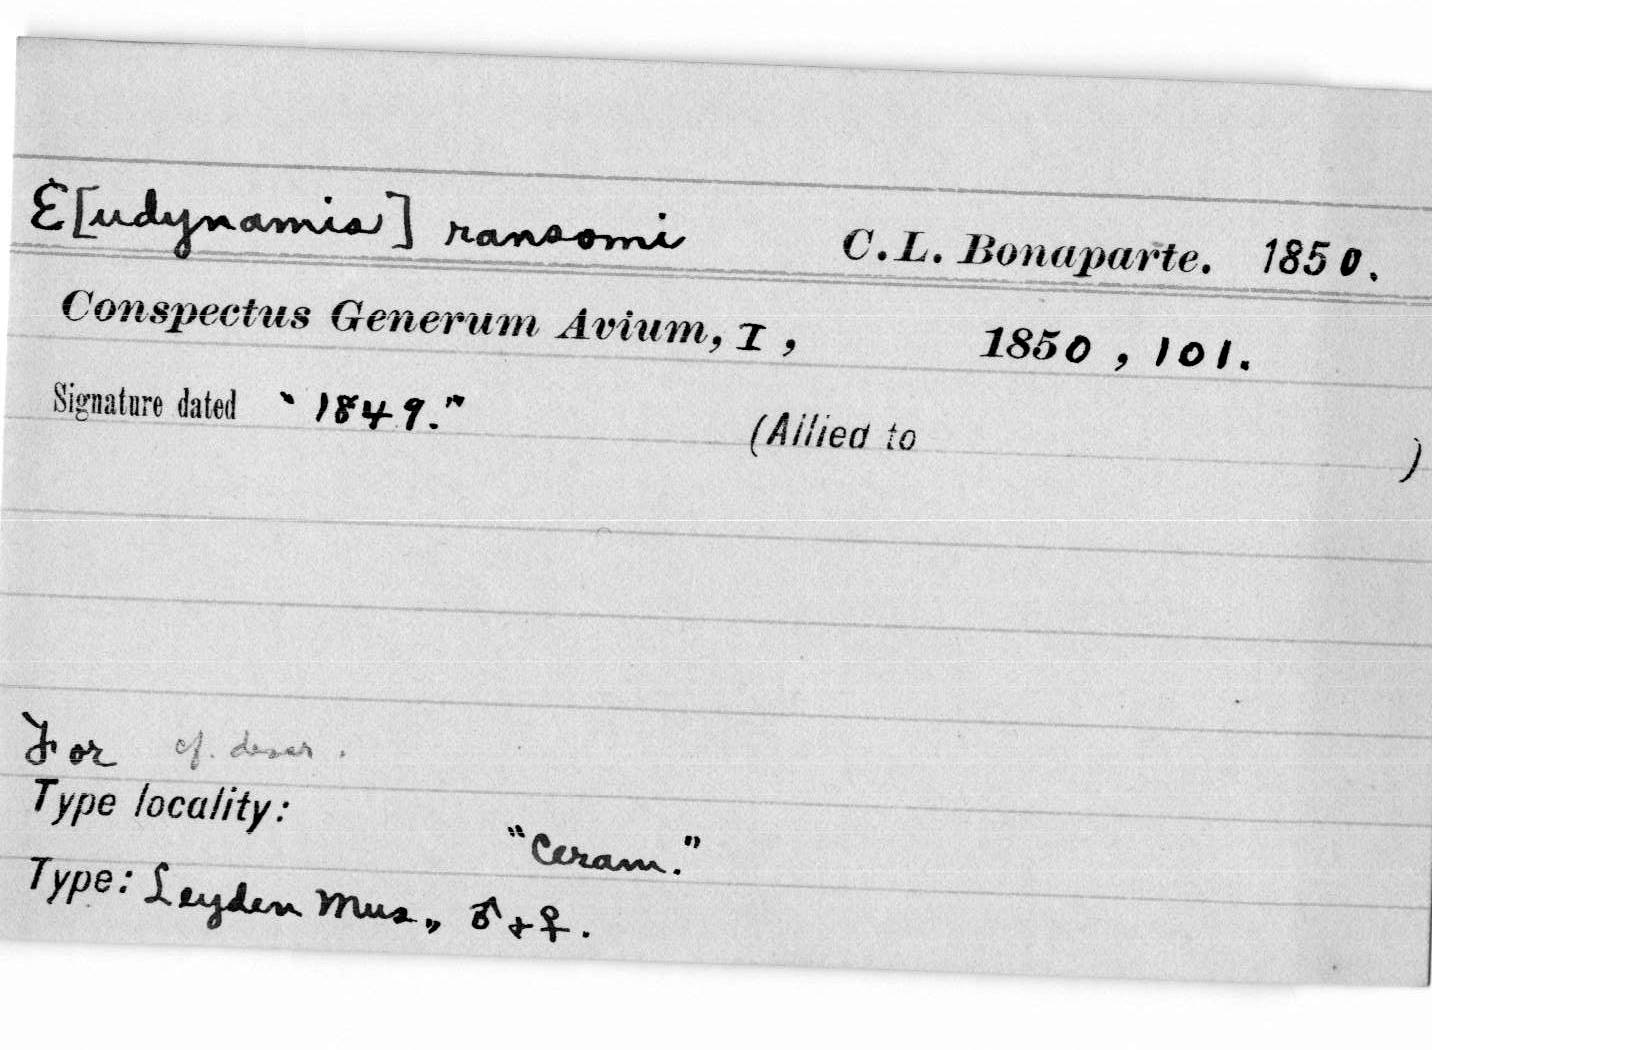 E[udynamis] ransomi C.L. Bonaparte. 1850.
Conspectus Generum Avium, I, 1850, 101.
Signature dated "1849."
(Allied to )
For cf. descr.
Type locality:
"Ceram."
Type: Leyden Mus., ♂ + ♀.